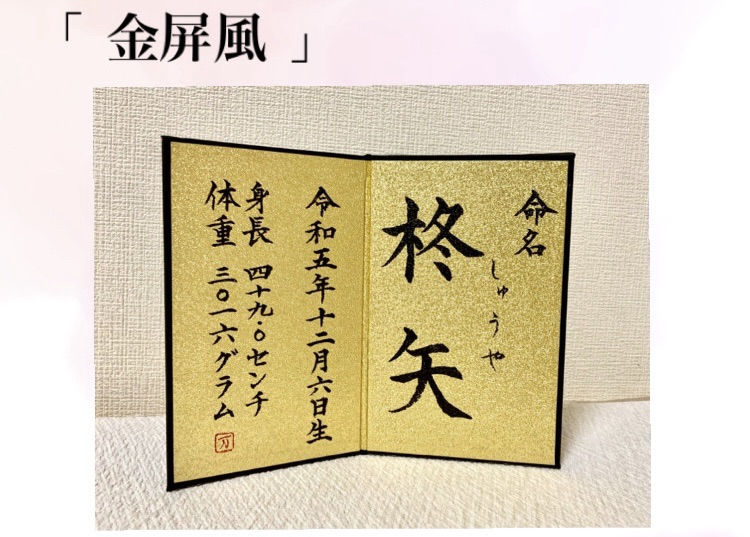 「 金屏風 」
命名
しゅうや
柊矢
令和五年十二月六日生
身長 四十九.〇センチ
体重 三〇一六グラム